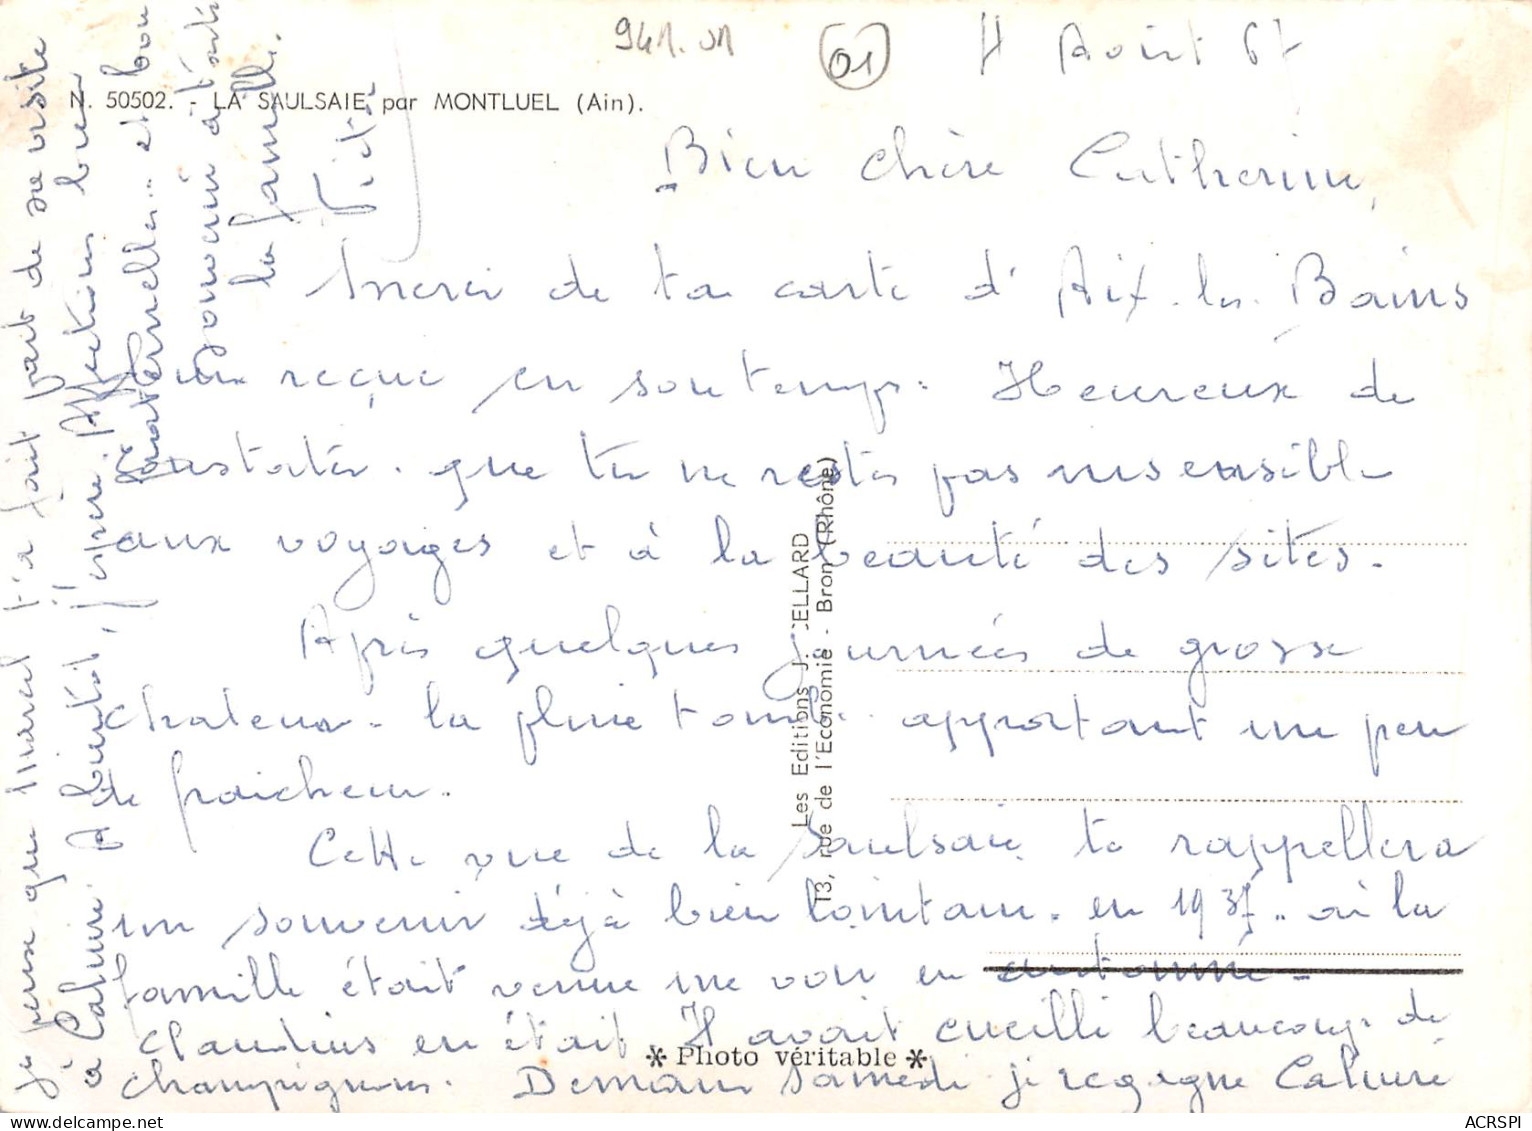 941.01
01
Août 67
N. 50502. - LA SAULSAIE par MONTLUEL (Ain).
Bien chère Catherine,
Merci de ta carte d'Aix-les-Bains
reçue en son temps. Heureux de
constater que tu ne restes pas insensible
aux voyages et à la beauté des sites.
Après quelques journées de grosse
chaleur - la pluie tombe apportant un peu
de fraicheur.
Cette vue de la Saulsaie te rappellera
un souvenir déjà bien lointain. en 1937.. où la
famille était venue me voir en automne -
Claudius en était Il avait cueilli beaucoup de
champignons. Demain samedi je regagne Caluire
je pense que Marcel t'a fait part de sa visite
à Caluire. A bientôt, j'espère. Affections bien
fraternelles... et bon
souvenir à toute
la famille.
Les Editions J. CELLARD
13, rue de l'Economie - Bron (Rhône)
* Photo véritable *
ACRSPI